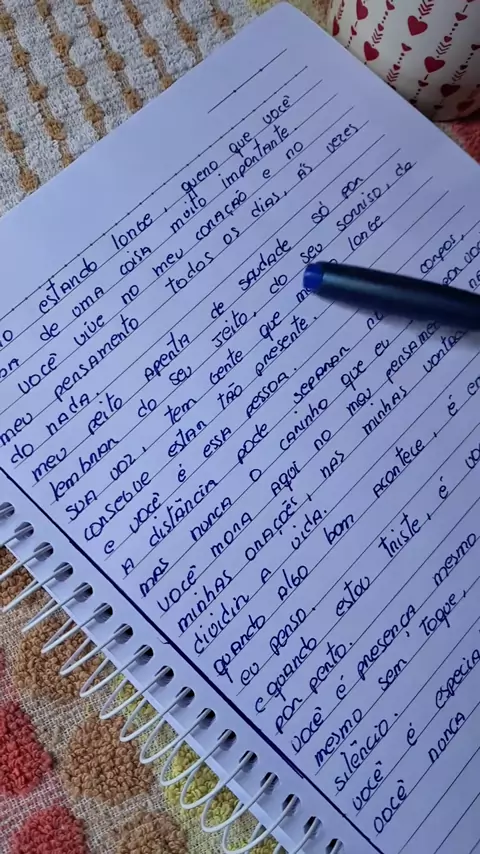 estando longe, quero que você
de uma coisa muito importante.
você vive no meu coração e no
meu pensamento todos os dias, às vezes
do nada.
meu peito aperta de saudade só por
lembrar do seu jeito, do seu sorriso, da
sua voz, tem gente que longe
consegue estar tão presente.
e você é essa pessoa.
A distância pode separar corpos,
mas nunca o carinho que eu por você
você mora aqui no meu pensamento,
minhas orações, nas minhas
dividir a vida.
quando algo bom acontece, é em
eu penso.
e quando estou triste, é
por perto.
você é presença mesmo
mesmo sem toque,
silêncio.
você é
você nunca